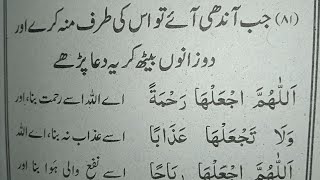 (۸۱) جب آندھی آئے تو اس کی طرف منہ کرے اور
دو زانوں بیٹھ کر یہ دعا پڑھے
اَللّٰهُمَّ اجْعَلْهَا رَحْمَةً اے اللہ اسے رحمت بنا، اور
وَلَا تَجْعَلْهَا عَذَابًا اسے عذاب نہ بنا، اے اللہ
اَللّٰهُمَّ اجْعَلْهَا رِيَاحًا اسے نفع والی ہوا بنا اور